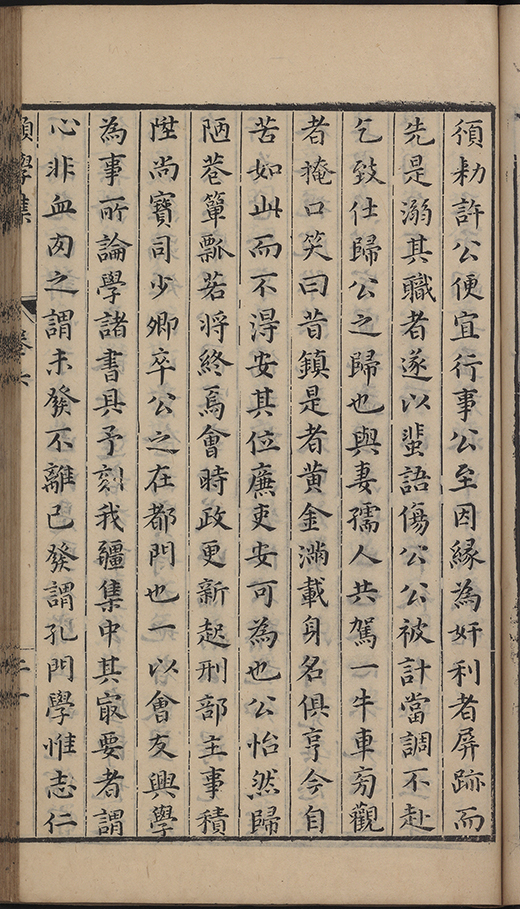 須勅許公便宜行事公至因緣為奸利者屏跡而
先是溺其職者遂以蜚語傷公公被計當調不赴
乞致仕歸公之歸也與妻孺人共駕一牛車旁觀
者掩口笑曰昔鎮是者黄金滿載身名俱亨今自
苦如此而不得安其位廉吏安可為也公怡然歸
陋巷簞瓢若將終焉會時政更新起刑部主事積
陞尚寶司少卿卒公之在都門也一以會友興學
為事所論學諸書具予刻我疆集中其㝡要者謂
心非血肉之謂未發不離已發謂孔門學惟志仁
願學集
卷六